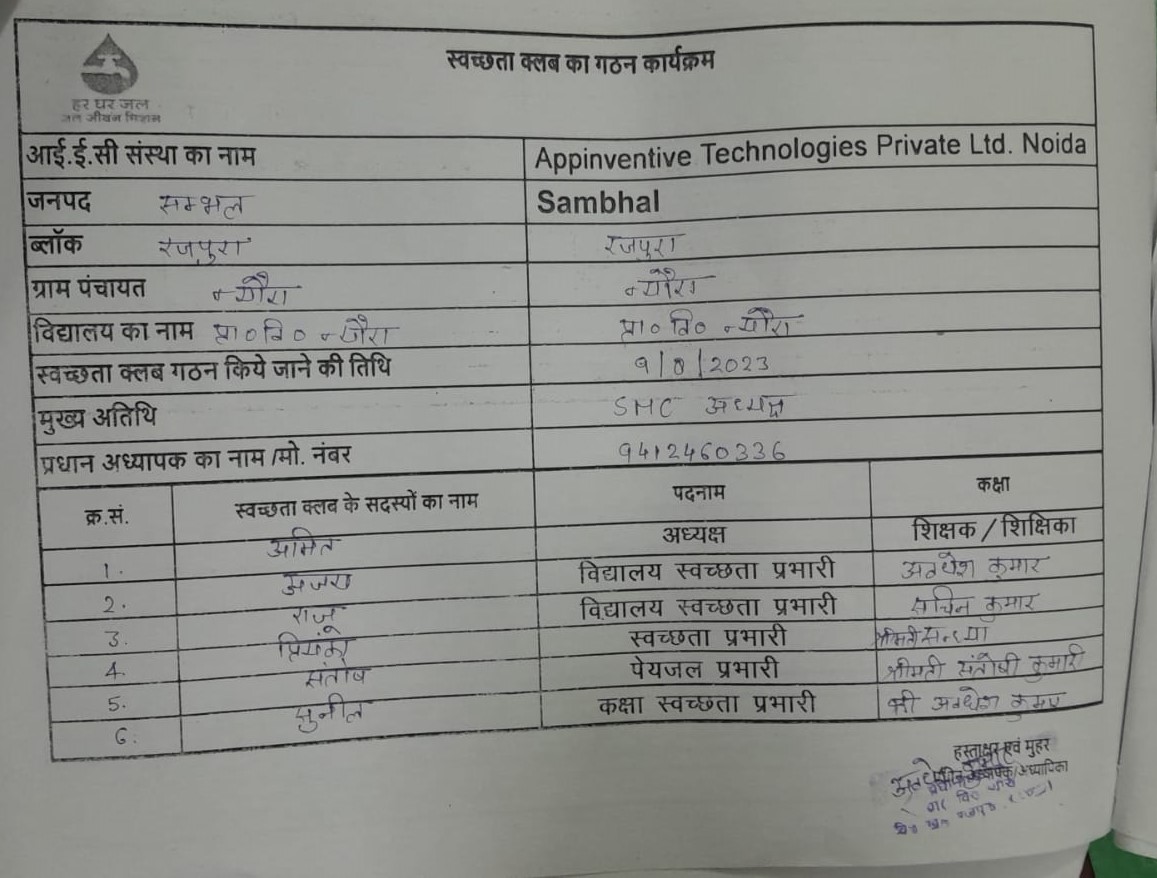 स्वच्छता क्लब का गठन कार्यक्रम
हर घर जल
जल जीवन मिशन
आई.ई.सी संस्था का नाम Appinventive Technologies Private Ltd. Noida
जनपद सम्भल Sambhal
ब्लॉक रजपुरा रजपुरा
ग्राम पंचायत न्यौरा न्यौरा
विद्यालय का नाम प्रा० वि० न्यौरा प्रा० वि० न्यौरा
स्वच्छता क्लब गठन किये जाने की तिथि 9/8/2023
मुख्य अतिथि SMC अध्यक्ष
प्रधान अध्यापक का नाम /मो. नंबर 9412460336
क्र.सं. स्वच्छता क्लब के सदस्यों का नाम पदनाम कक्षा
अमित अध्यक्ष शिक्षक / शिक्षिका
1. विद्यालय स्वच्छता प्रभारी अवधेश कुमार
2. राजू विद्यालय स्वच्छता प्रभारी सचिन कुमार
3. प्रियंका स्वच्छता प्रभारी श्रीमती सन्ध्या
4. संतोष पेयजल प्रभारी श्रीमती संतोषी कुमारी
5. सुनील कक्षा स्वच्छता प्रभारी श्री अवधेश कुमार
6.
हस्ताक्षर एवं मुहर